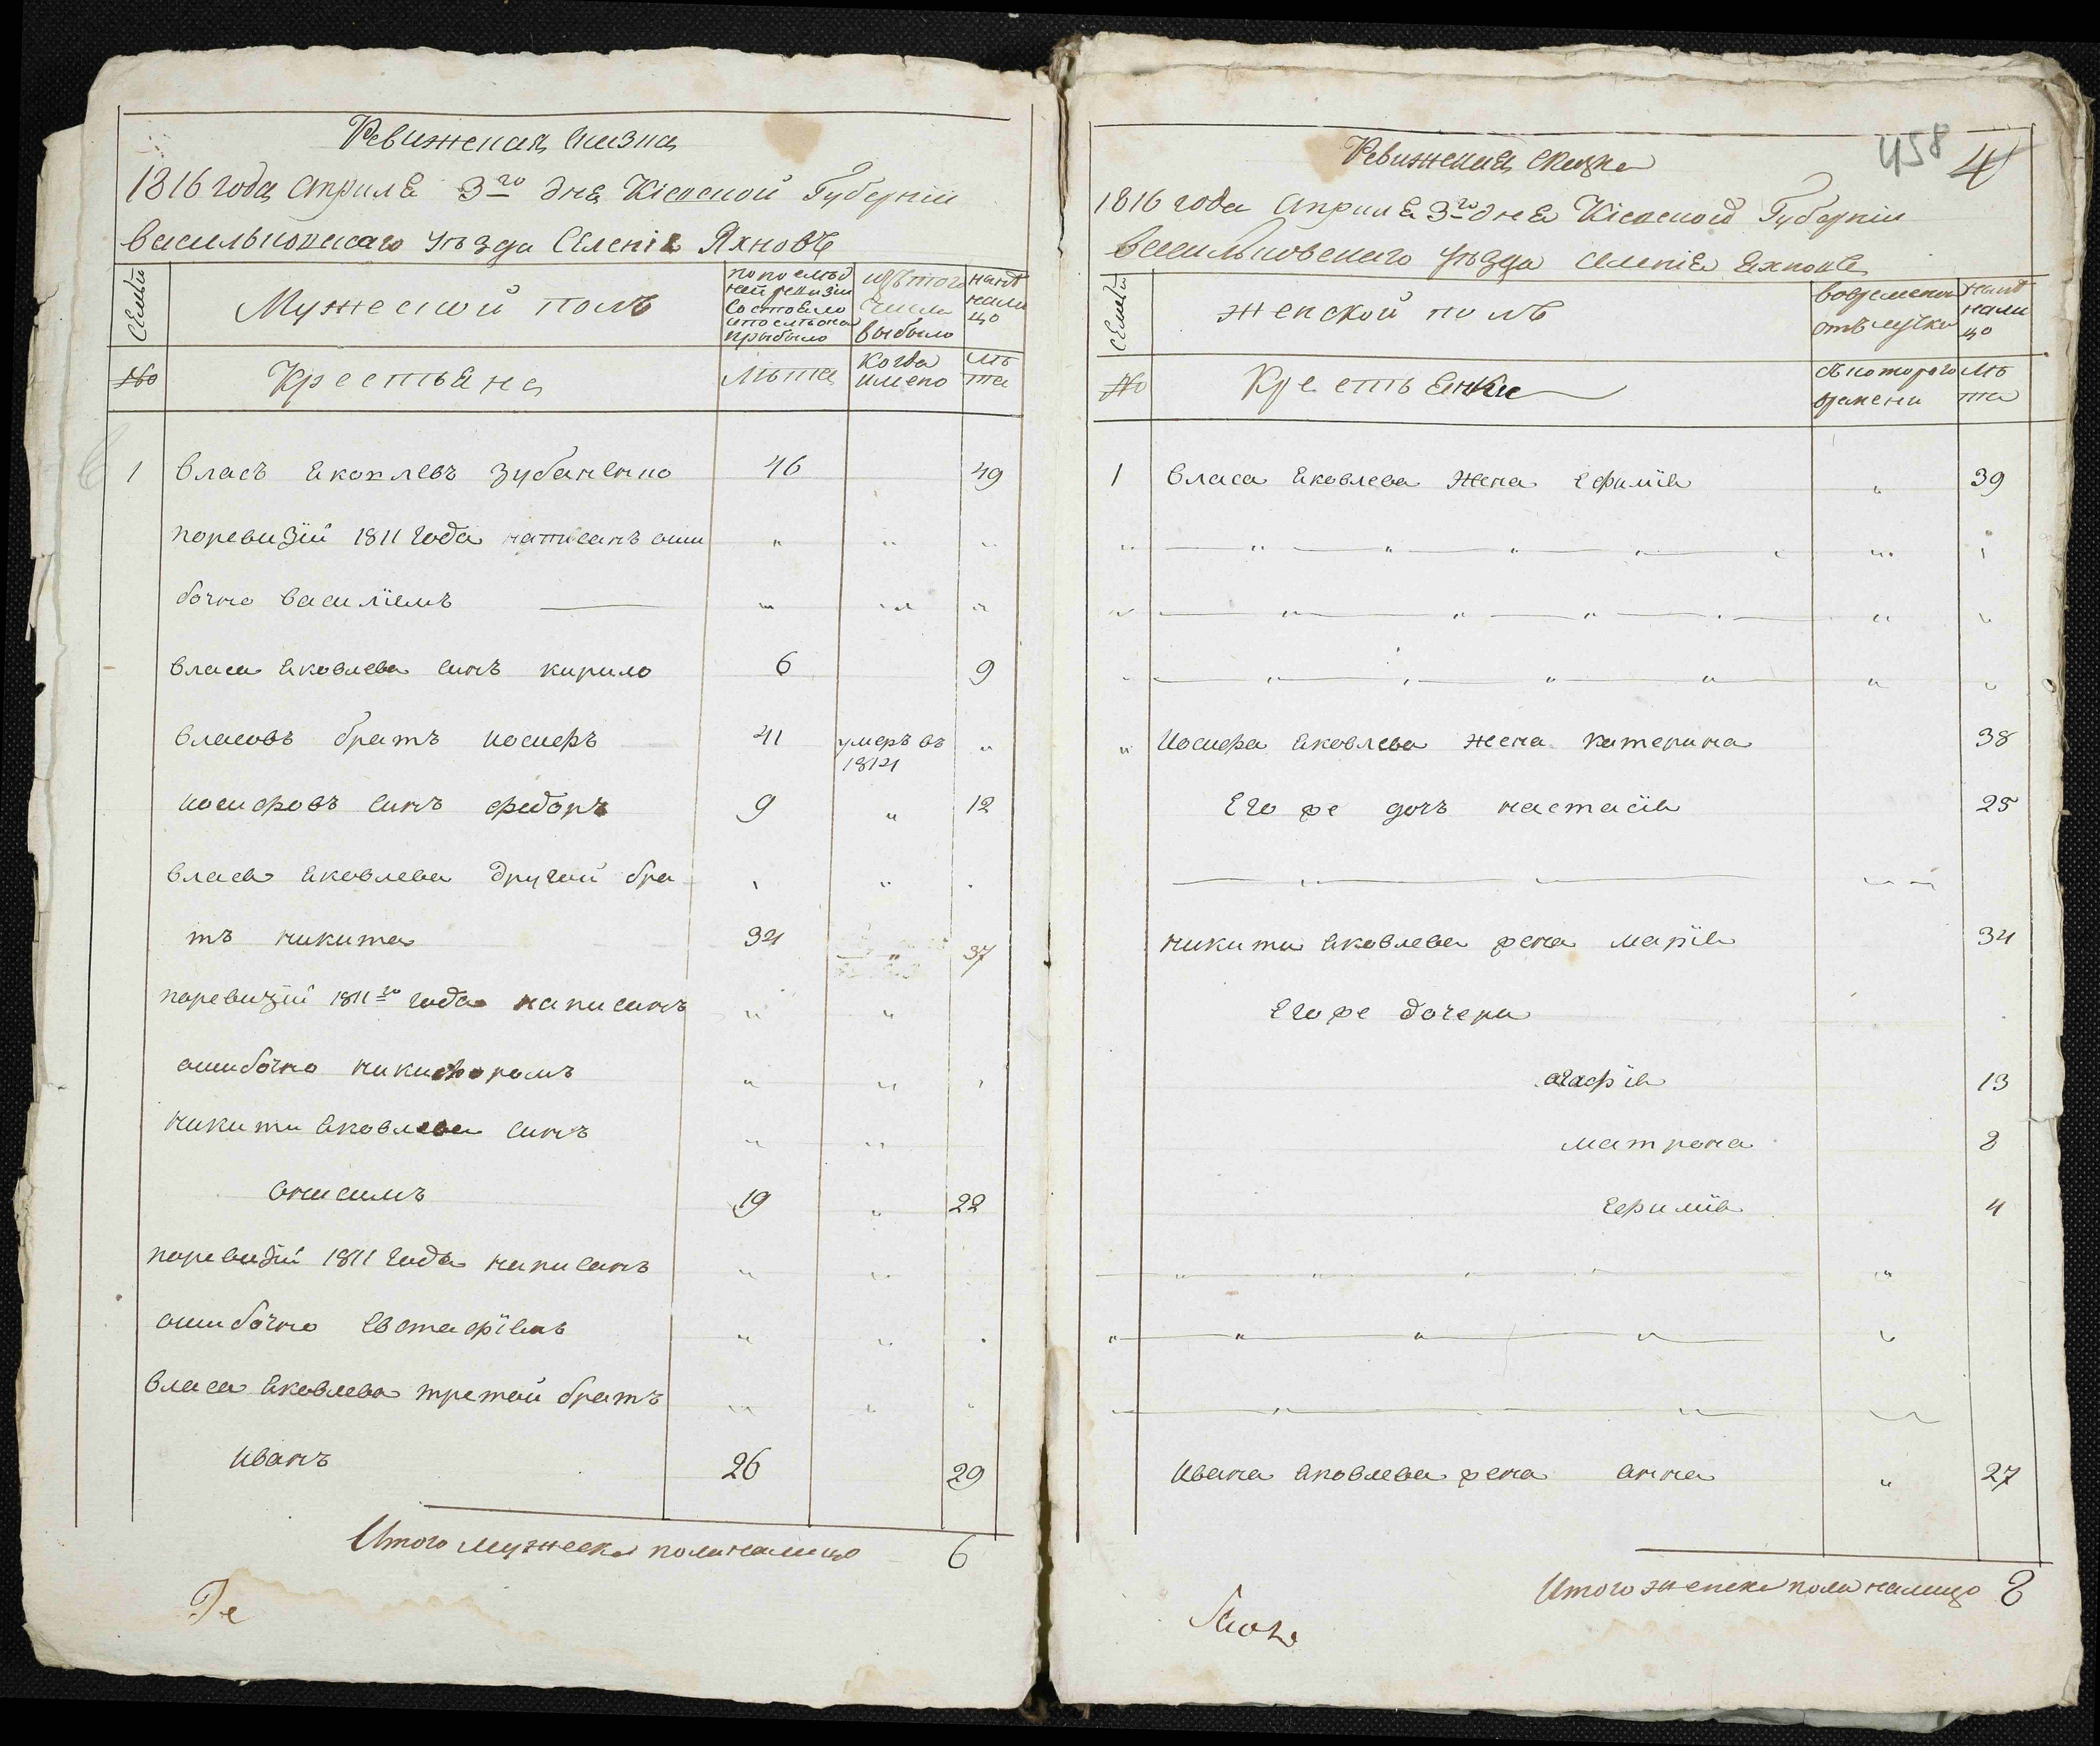 Ревижская сказка
1816 года Априля 3го дня Кіевской Губерніи
васильковскаго уѣзда Селенія Яхновъ
Семьи
Мужеской полъ
по послѣд
ней ревизіи
состояло
и после оной
прыбыло
изъ того
числа
выбыло
нынѣ
на ли
цо
№
Крестьяне
Лѣта
Когда
имено
лѣ
та
1 власъ яковлевъ зубаненко 46 49
поревизіи 1811 года написанъ оши
бочно василіемъ
власа яковлева синъ кирило 6 9
власовъ братъ иосифъ 41 умеръ въ 1814
иосифовъ синъ федоръ 9 12
власа яковлева другий бра
тъ никита 34 37
поревизіи 1811го года написанъ
ошибочно никифоромъ
никити яковлева синъ
онисимъ 19 22
поревизіи 1811 года написанъ
ошибочно евстафіемъ
власа яковлева третой братъ
иванъ 26 29
Итого мужеска пола налицо 6
Ге
458 4
Ревижская сказка
1816 года Априля 3го дня Кіевской Губерніи
васильковскаго уѣзда селенія яхновъ
Семьи
женской полъ
вовременой
отълучки
нынѣ
нали
цо
№
Крестьянки
съкоторого
времени
лѣ
та
1 власа яковлева жена ефимія 39
иосифа яковлева жена катерина 38
его же дочъ настасія 25
никити яковлева жена марія 34
его же дочери
агафія 13
матрона 8
ефимія 4
ивана яковлева жена анна 27
Итого женска пола налицо 8